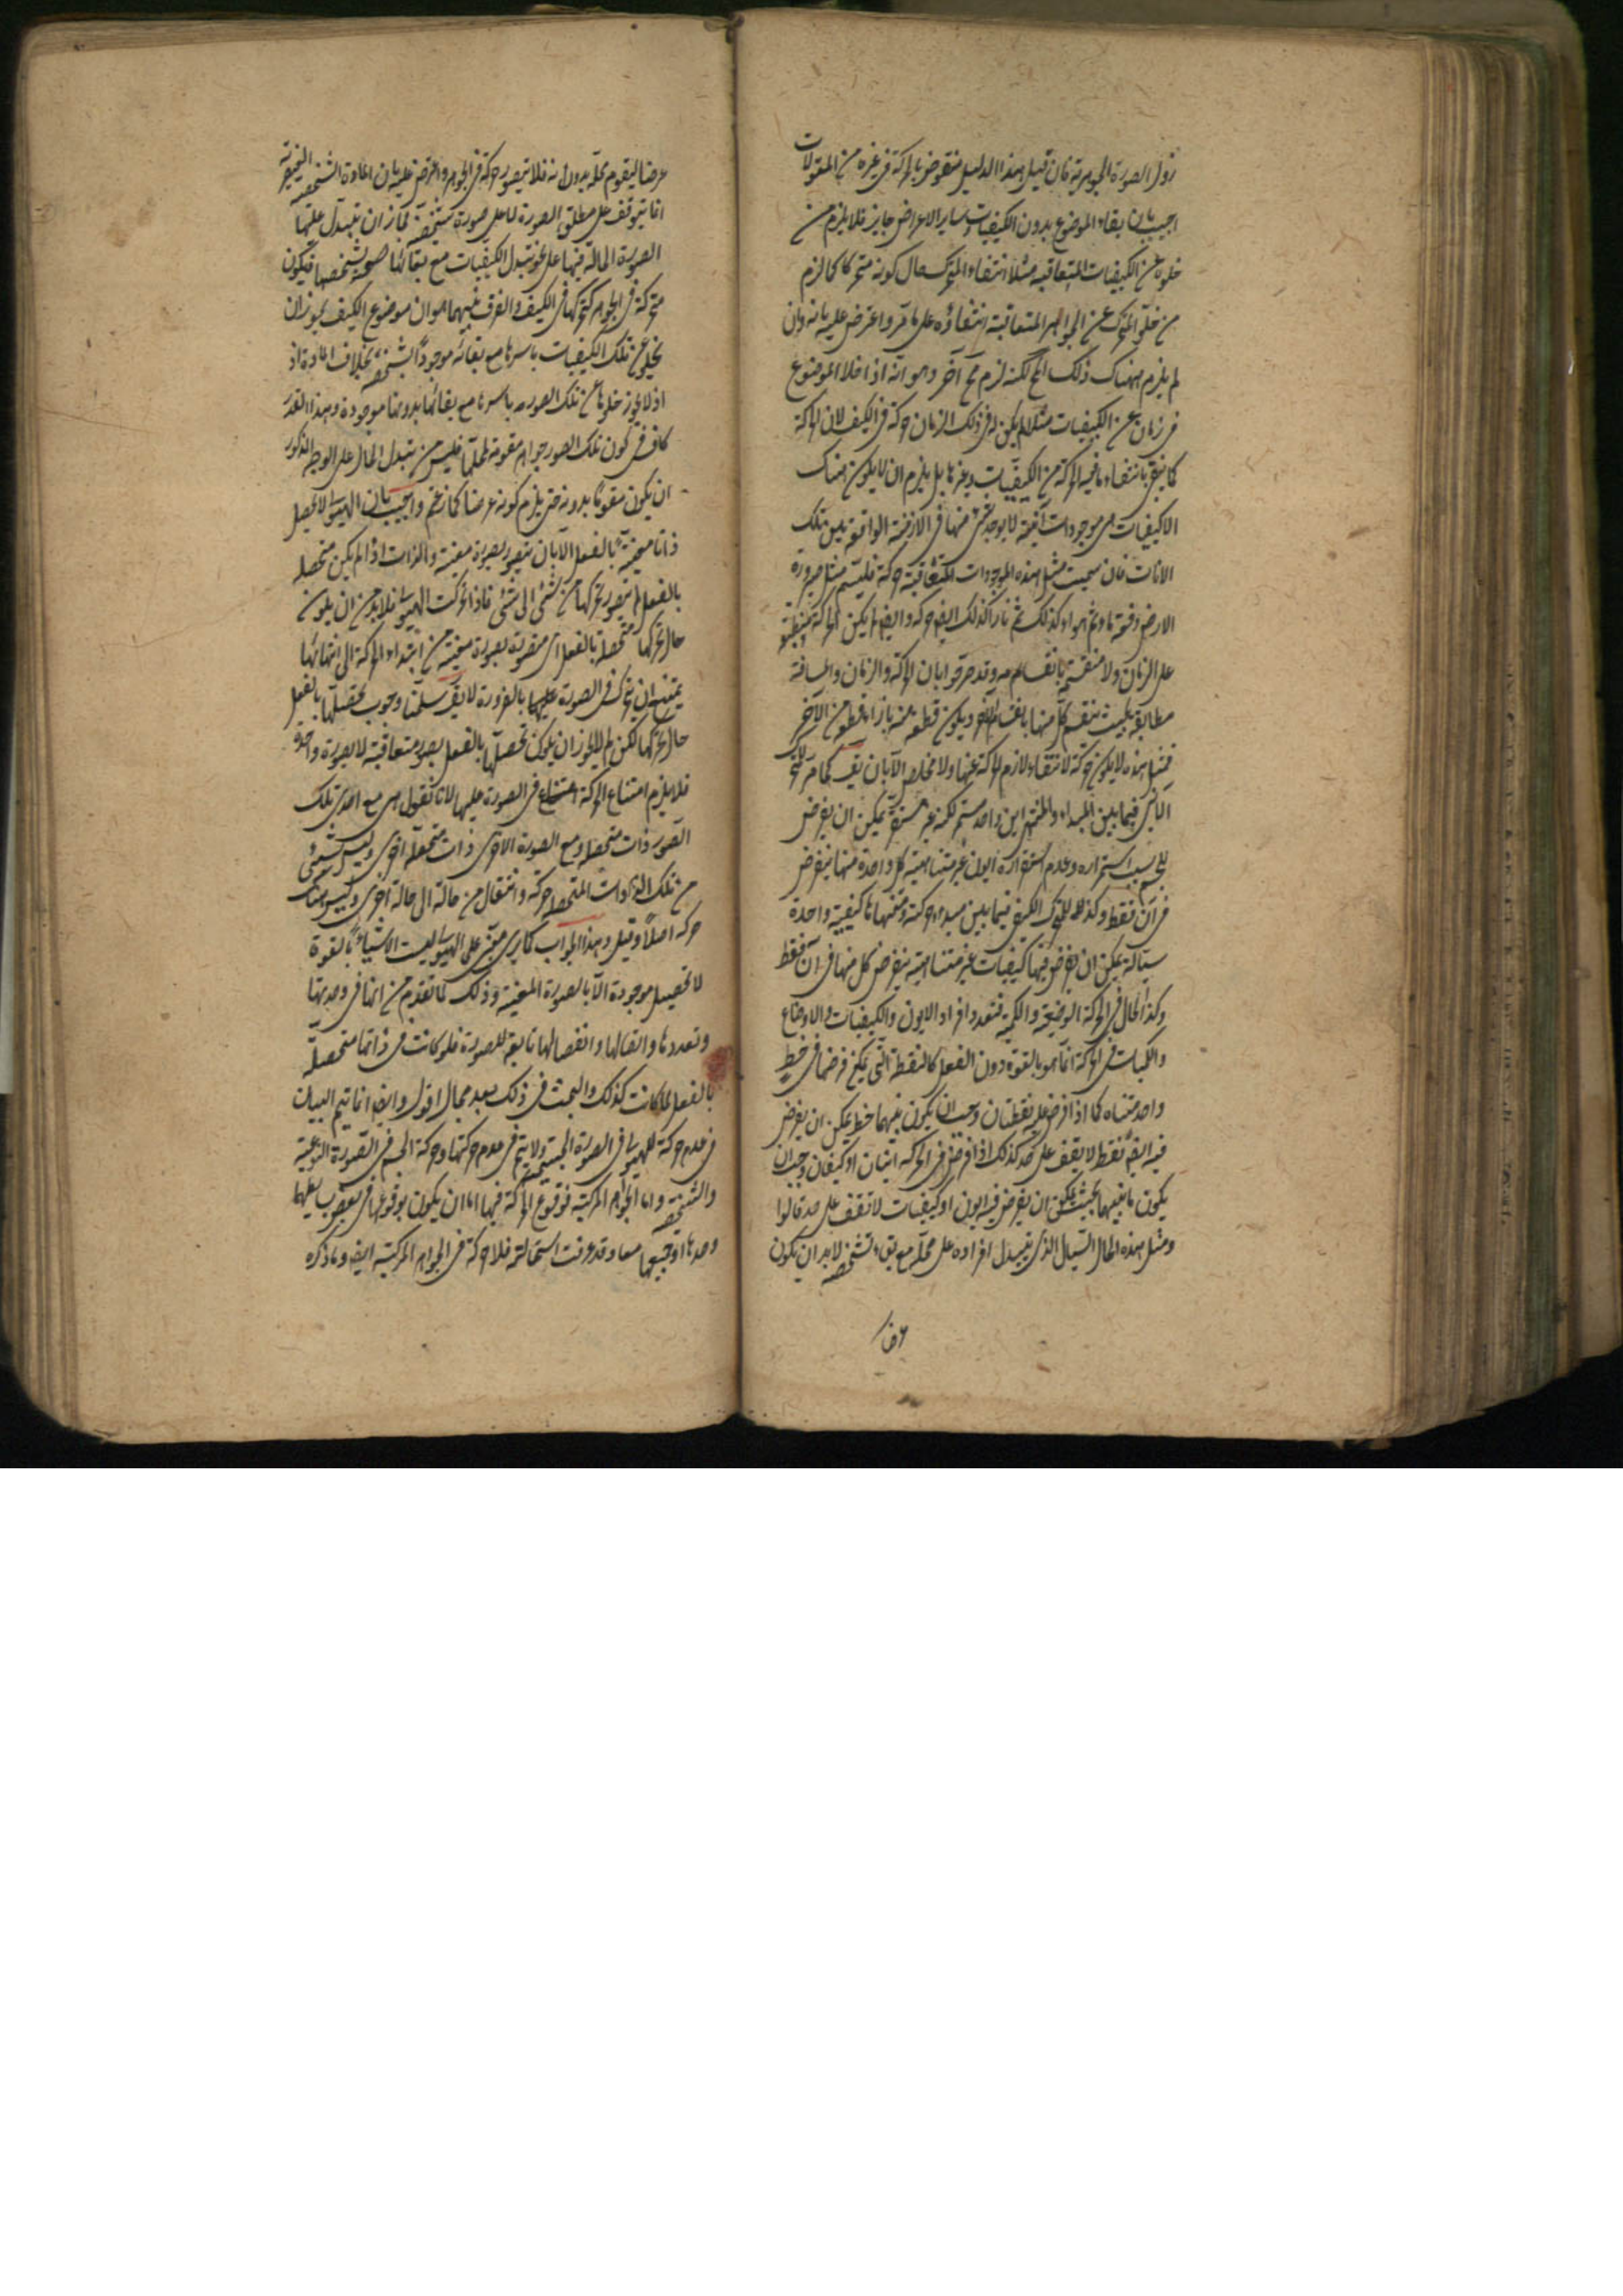 زول الصورة الجوهرية فان قيل هذا الدليل منقوض بالحركة في غيره من المقولات
اجيب بان بقاء الموضوع بدون الكيفيات وساير الاعراض جايز فلا يلزم من
خلوه عن الكيفيات المتعاقبة مثلا انتفاء المتحرك حال كونه متحركا كما لزم
من خلو المتحرك عن الجواهر المتعاقبة انتفاؤه على ما مر واعترض عليه بانه وان
لم يلزم ههناك ذلك المح لكنه لزم مح آخر وهو انه اذا خلا الموضوع
في زمان عن الكيفيات مثلا لم يكن له في ذلك الزمان حركة في الكيف لان الحركة
كما ينتفي بانتفاء ما فيه الحركة من الكيفيات وغيرها بل يلزم ان لا يكون هناك
الا كيفيات هي موجودات آنية لا يوجد شئ منها في الازمنة الواقعة بين تلك
الانات فان سميت مثل هذه الموجودات المتعاقبة حركة فليسم مثل صيرورة
الارض دفعة ماء ثم هواء كذلك ثم نارا كذلك ايض حركة وايض لم يكن الحركة منطبقة
على الزمان ولا منقسمة بانقسامه وقد صرحوا بان الحركة والزمان والمسافة
مطابقة بحيث ينقسم كل منها بانقسام الآخر ويكون قطعة منه بازاء قطعة من الآخر
فمثل هذه لا يكون حركة لانتفاء لازم الحركة عنها ولا مخلص الا بان يق كما مر للمتحرك
الايني فيما بين المبداء والمنتهى اين واحد مستمر لكنه غير مستقر يمكن ان يفرض
للجسم بسبب استمراره وعدم استقراره ايون غير متناهية كل واحدة منها ينفرض
في آن فقط وكذلك للمتحرك الكيفي فيما بين مبدء حركته ومنتهاها كيفية واحدة
سيالة يمكن ان يفرض فيها كيفيات غير متناهية ينفرض كل منها في آن فقط
وكذا الحال في الحركة الوضعية والكمية فتعدد افراد الايون والكيفيات والاوضاع
والكميات في الحركة انما هو بالقوة دون الفعل كالنقطة التي يمكن فرضها في خط
واحد متناه كما اذا فرض عليه نقطتان وجب ان يكون بينهما خط يمكن ان يفرض
فيه ايض نقط لا يقف على حد كذلك اذا فرض في الحركة اينان او كيفان وجب ان
يكون ما بينهما بحيث يمكن ان يفرض فيه ايون او كيفيات لا تقف على حد قالوا
ومثل هذه الحال السيال الذي يتبدل افراده على محله مع بقاء تشخصه لابد ان يكون
عرضا ليقوم محله بدونه فلا يتصور حركة في الجوهر واعترض عليه بان المادة الشخصية
انما يتوقف على مطلق الصورة لا على صورة متشخصة فجاز ان يتبدل عليها
الصورة الحالة فيها على نحو تبدل الكيفيات مع بقائها بشخصها فيكون
متحركة في الجوهر كتحركها في الكيف والفرق بينهما هو ان موضوع الكيف يجوز ان
يخلو عن تلك الكيفيات باسرها مع بقائه موجودا بشخصه بخلاف المادة اذ
اذ لا يجوز خلوها عن تلك الصورة باسرها مع بقائها بدونها موجودة وهذا القدر
كاف في كون تلك الصور جواهر مقومة لمحلها فليس من تبدل الحال على الوجه المذكور
ان يكون متقوما بدونه حتى يلزم كونه عرضا كما زعم واجيب بان الهيولى لا يحصل
ذاتا معينة بالفعل الا بان يتصور بصورة معينة والذات اذا لم يكن متحصلة
بالفعل لم يتصور تحركها من شئ الى شئ فاذا تحركت الهيولى فلابد من ان يكون
حال تحركها متحصلة بالفعل اي متصورة بصورة معينة من ابتداء الحركة الى انتهائها
يمتنع ان يتحرك في الصورة عليها بالضرورة لا يق سلمنا وجوب تحصلها بالفعل
حال تحركها لكن لم لا يجوز ان يكون تحصلها بالفعل بصور متعاقبة لا بصورة واحدة
فلا يلزم امتناع الحركة في الصورة عليها لانا نقول هي مع احدى تلك
الصور ذات متحصلة ومع الصورة الاخرى ذات متحصلة اخرى وليس شئ
من تلك الذوات المتحصلة حركة وانتقال من حالة الى حالة اخرى وليس هناك
حركة اصلا وقيل وهذا الجواب كما ترى مبني على الهيولى ليست الاشياء بالقوة
لا تحصيل موجودة الا بالصورة المعينة وذلك لما تقدم من انها في وحدتها
وتعددها واتصالها وانفصالها تابعة للصورة فلو كانت في ذاتها متحصلة
بالفعل لما كانت كذلك والبحث في ذلك بعد مجال اقول وايض انما يتم البيان
في عدم حركة الهيولى في الصورة الجسمية ولا يتم في عدم حركتها وحركة الجسم في الصورة النوعية
والشخصية واما الجواهر المركبة فوقوع الحركة فيها اما ان يكون بوقوعها في بعض
وحدها او جميعها معا وقد عرفت استحالته فلا حركة في الجواهر المركبة ايض وما ذكره